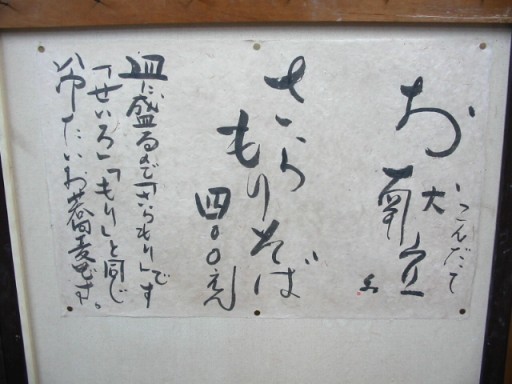 お献立
こんだて
さらもりそば
四〇〇えん
皿に盛るので「さらもり」です
「せいろ」「もり」と同じ
冷たいお蕎麦です。